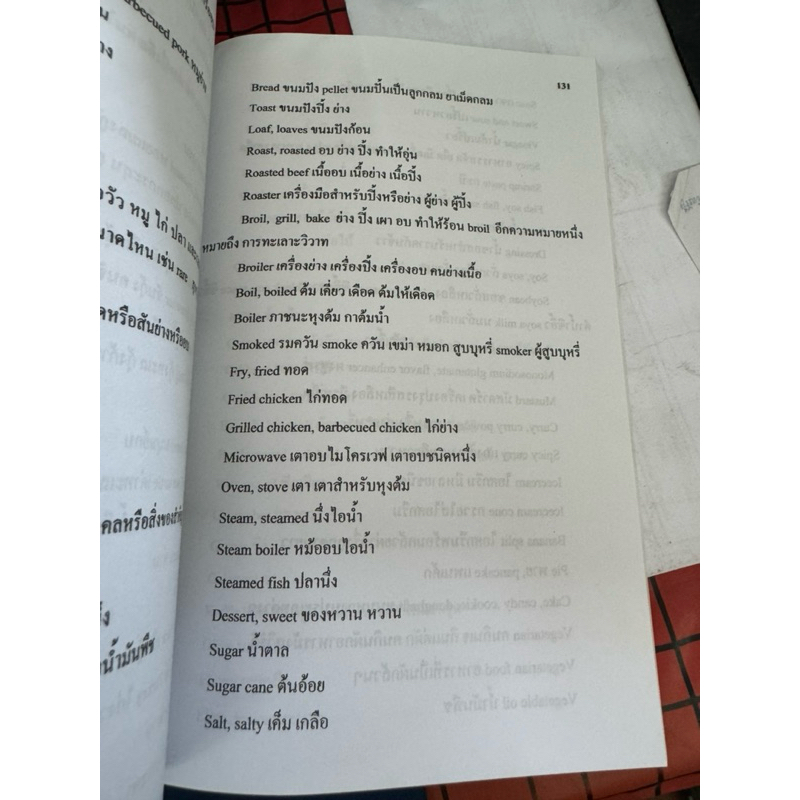 arbecued pork หมูย่าง
วัว หมู ไก่ ปลา
นาดไหน เช่น rare
ดหรือสันย่างหรืออบ
คลหรือสิ่งของสำคัญ
น้ำมันพืช
131
Bread ขนมปัง pellet ขนมปั้นเป็นลูกกลม ยาเม็ดกลม
Toast ขนมปังปิ้ง ย่าง
Loaf, loaves ขนมปังก้อน
Roast, roasted อบ ย่าง ปิ้ง ทำให้อุ่น
Roasted beef เนื้ออบ เนื้อย่าง เนื้อปิ้ง
Roaster เครื่องมือสำหรับปิ้งหรือย่าง ผู้ย่าง ผู้ปิ้ง
Broil, grill, bake ย่าง ปิ้ง เผา อบ ทำให้ร้อน broil อีกความหมายหนึ่ง
หมายถึง การทะเลาะวิวาท
Broiler เครื่องย่าง เครื่องปิ้ง เครื่องอบ คนย่างเนื้อ
Boil, boiled ต้ม เคี่ยว เดือด ต้มให้เดือด
Boiler ภาชนะหุงต้ม กาต้มน้ำ
Smoked รมควัน smoke ควัน เขม่า หมอก สูบบุหรี่ smoker ผู้สูบบุหรี่
Fry, fried ทอด
Fried chicken ไก่ทอด
Grilled chicken, barbecued chicken ไก่ย่าง
Microwave เตาอบไมโครเวฟ เตาอบชนิดหนึ่ง
Oven, stove เตา เตาสำหรับหุงต้ม
Steam, steamed นึ่งไอน้ำ
Steam boiler หม้ออบไอน้ำ
Steamed fish ปลานึ่ง
Dessert, sweet ของหวาน หวาน
Sugar น้ำตาล
Sugar cane ต้นอ้อย
Salt, salty เค็ม เกลือ